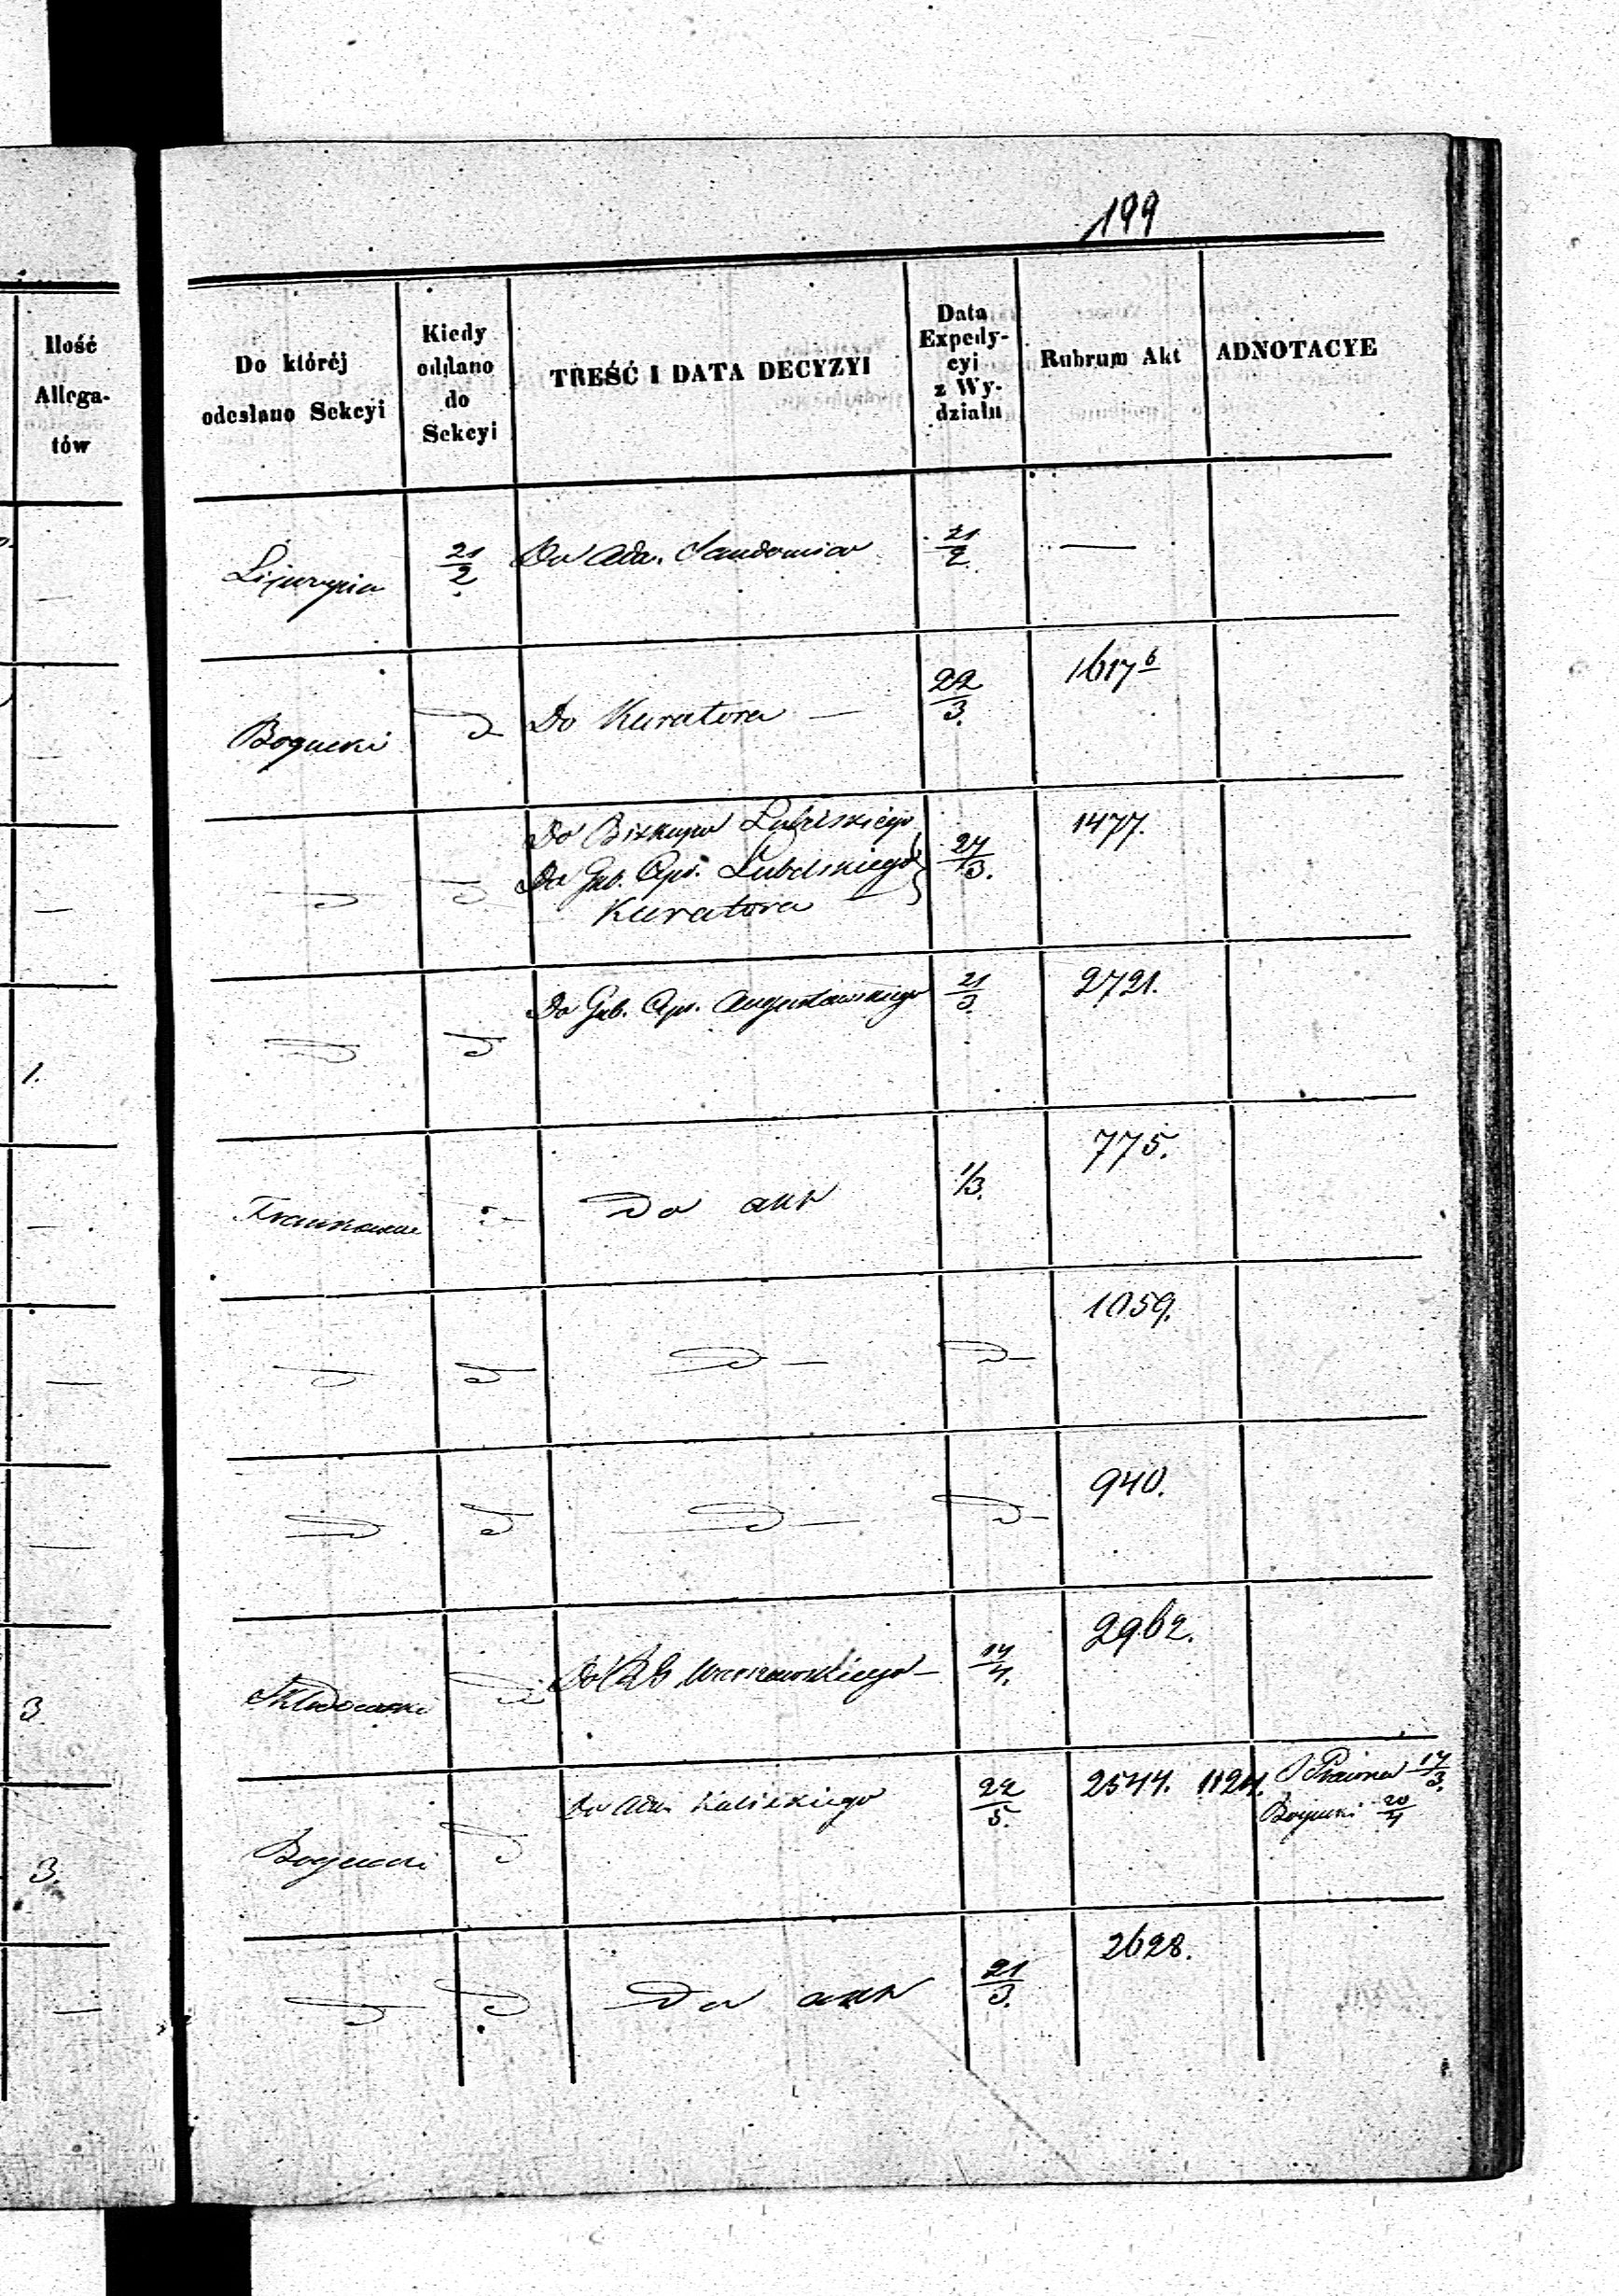 199
Ilość
Allega-
tów
Do któréj
odesłano Sekcyi
Kiedy
oddano
do
Sekcyi
TREŚĆ I DATA DECYZYI
Data
Expedy-
cyi
z Wy-
działu
Rubrum Akt
ADNOTACYE
21/2 Do Adm. Sandomier 21/2 —
Bogucki Do Kuratora — 22/3 1617 6
Do Biskupa Lubelskiego
Do Gub. Cyw. Lubelskiego 27/3. 1477.
Kuratora
Do Gub. Cyw. Augustowskiego 21/3. 2721.
1.
Do akt 1/3. 775.
1059.
940.
3 Do Warszawskiego — 2962.
3. Bogucki Do Adm. Kaliskiego 22/5. 2544. 1124. 17/3.
Bogucki 20/4
Do akt 21/3. 2628.